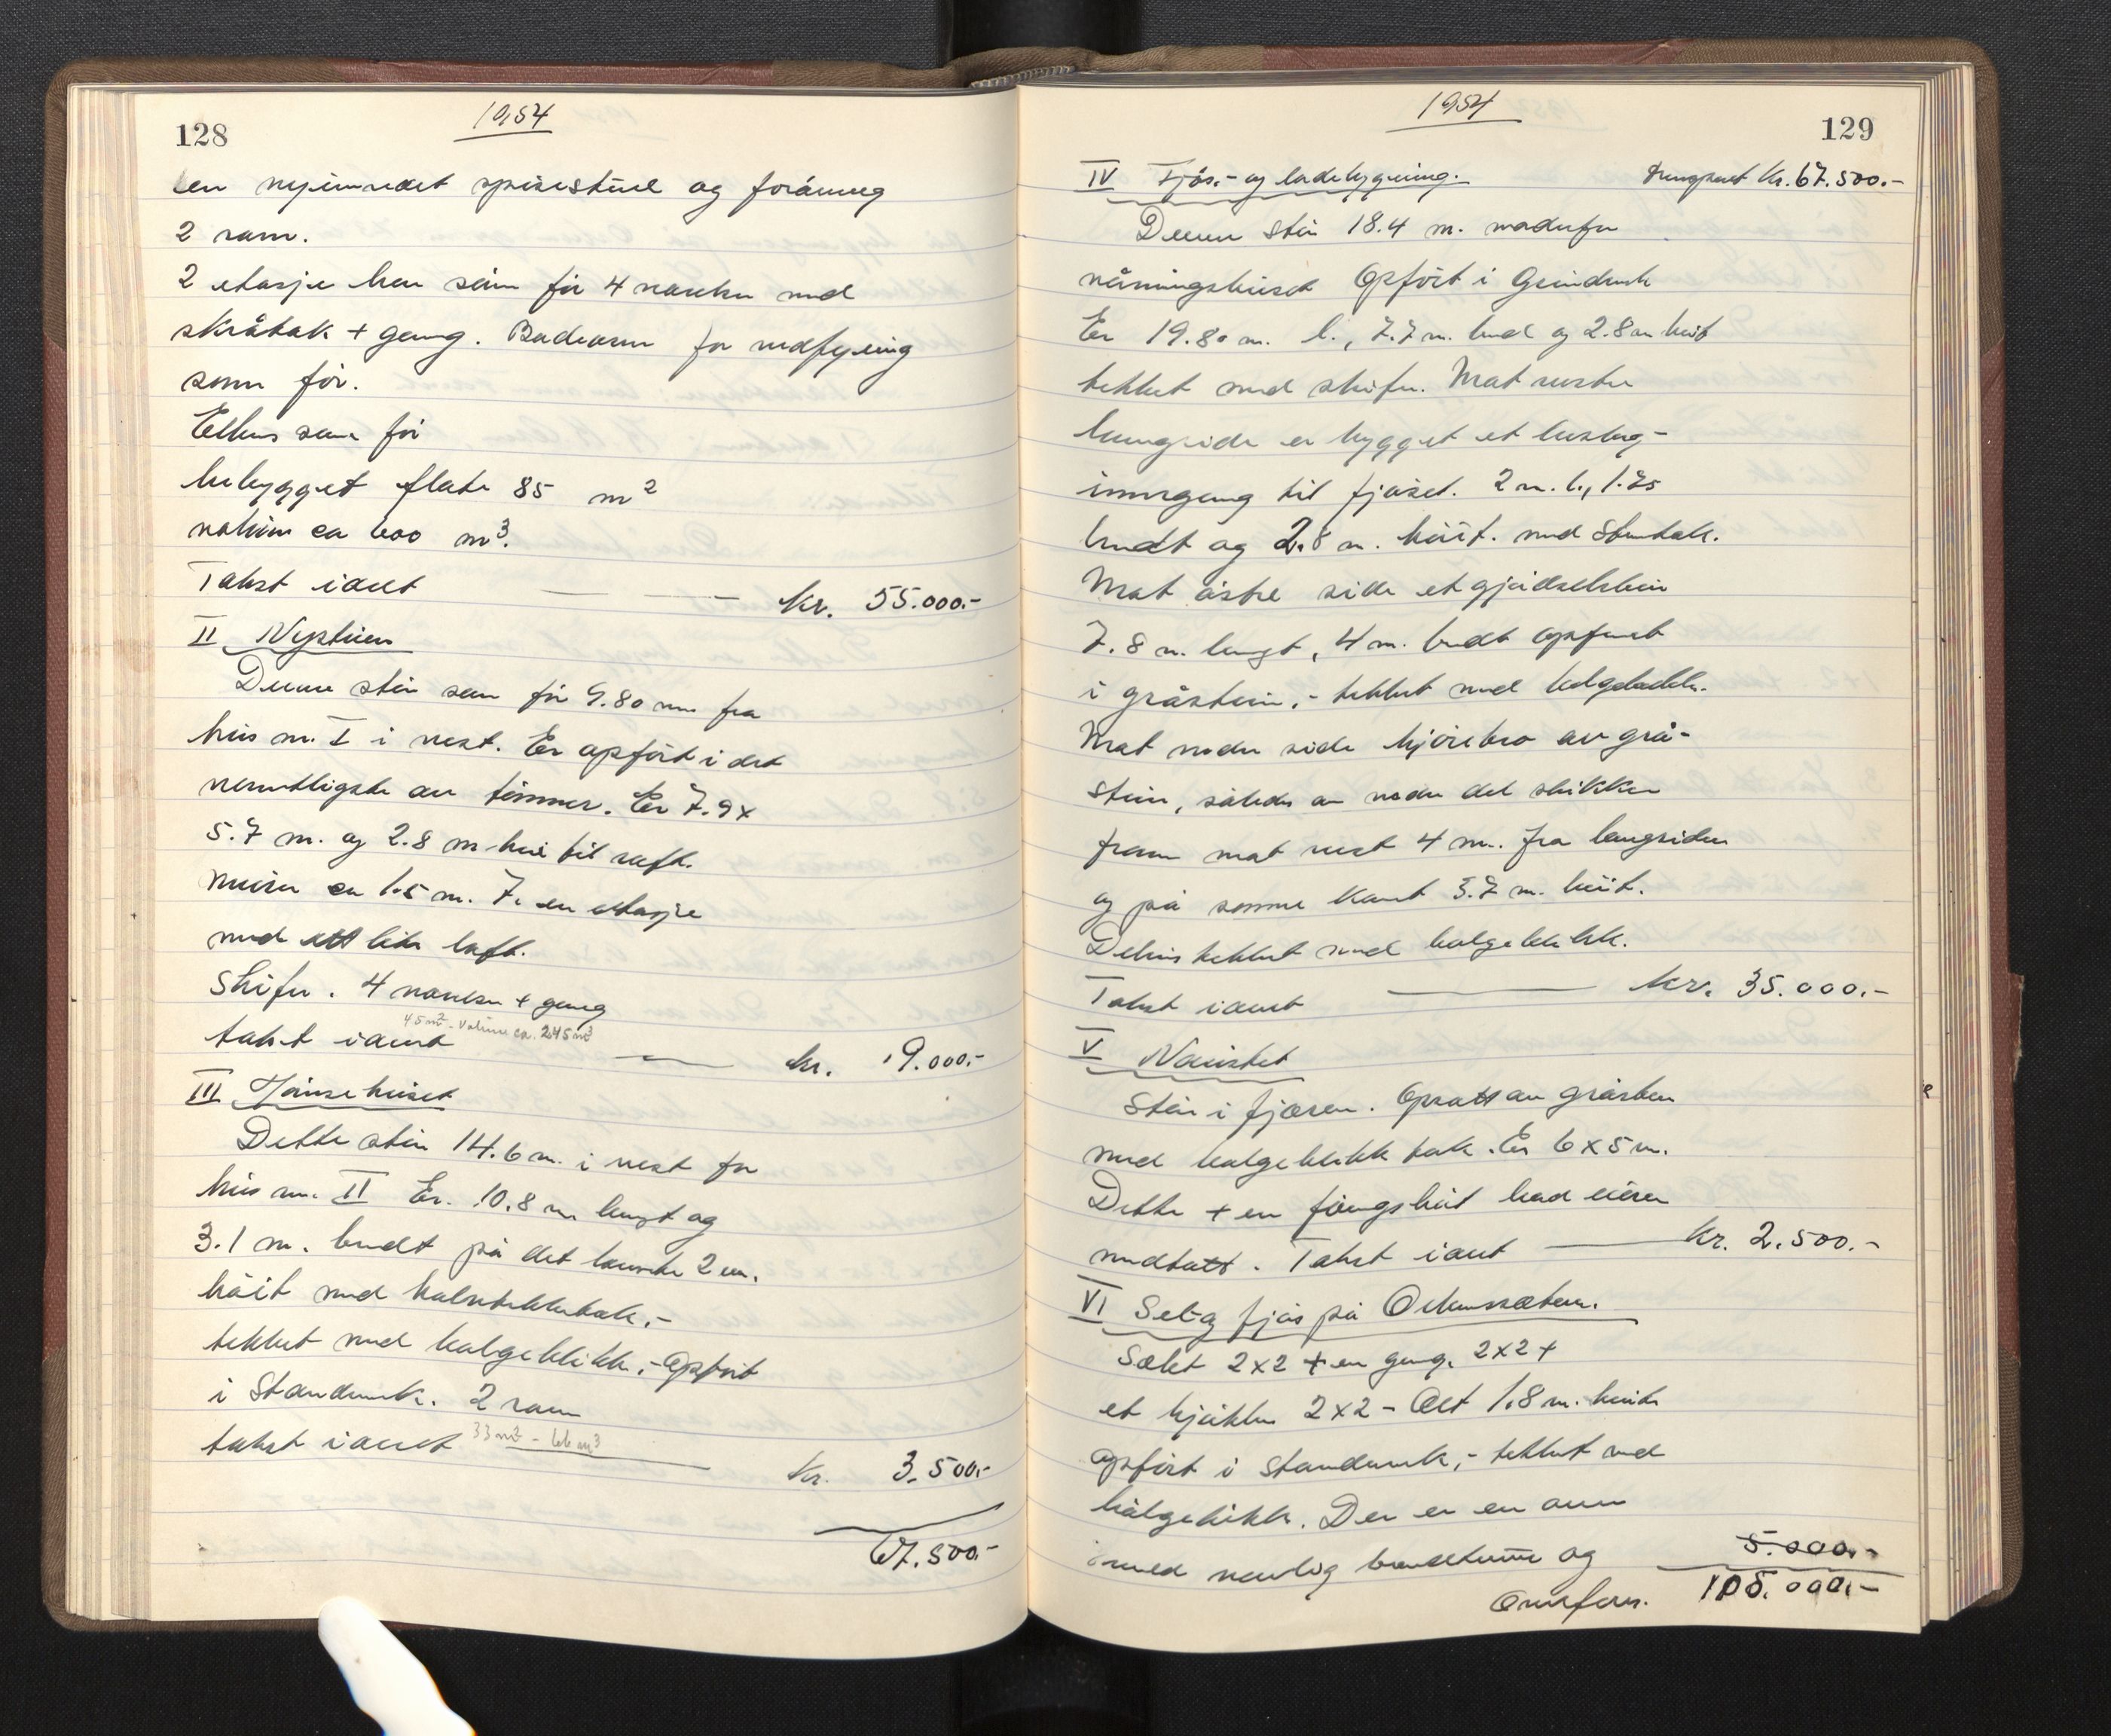 128
1954
en nyinnredet spisestue og forøvrig
2 rom.
2 etasje har som før 4 værelser med
skråtak + gang. Badeovn for vedfyring
som før.
Ellers som før
bebygget flate 85 m²
volum ca 600 m³.
Takst ialt — — kr. 55.000.-
II Nystuen
Denne står som før 9.80 m fra
hus nr. I i vest. Er opført i det
vesentligste av tømmer. Er 7.9 x
5.7 m. og 2.8 m høi til raft.
Muren ca 1.5 m. I. en etasje
med ett lite loft.
Skifer. 4 værelser + gang
45 m² - Volum ca. 245 m³
takst ialt — kr. 9.000.-
III Hønsehuset
Dette står 14.6 m. i vest for
hus nr. II Er. 10.8 m langt og
3.1 m. bredt på det 2 m.
høit med halvtekketak,-
tekket med bølgeblikk,- Opført
i Standverk. 2 rom
33 m² - 66 m³
takst iallt — kr. 3.500.-
67.500.-
1954
129
IV Fjøs,- og ladebygning. Transport kr. 67.500.-
Denne står 18.4 m. nordenfor
våningshuset Opført i Grindverk
Er 19.80 m. l., 7.7 m. bred og 2.8 m høit
tekket med skifer. Mot vestre
langside er bygget et bislag-
inngang til fjøset. 2 m. l., 1.75
bredt og 2.8 m. høit. med Stentak.
Mot østre side et gjødselskur
7.8 m. langt, 4 m. bredt opført
i gråstein,- tekket med bølgeblikk.
Mot nordre side kjørebro av grå-
stein, således av under det stikker
fram mot vest 4 m. fra langsiden
og på samme kant 3.7 m. høit.
Delvis tekket med bølgeblikk.
Takst iallt — kr. 35.000.-
V Naustet
Står i fjæren. Opsatt av gråsten
med bølgeblikk tak. Er 6 x 5 m.
Dette + en føringsbåt bad eieren
medtatt. Takst ialt — kr. 2.500.-
VI Sel og fjøs på
Selet 2x2 + en gang. 2x2 +
et kjøkken 2x2 - Alt 1.8 m. høide
Opført i standverk,- tekket med
bølgeblikk. Der er en ovn
med vanlig brandmur og 5.000.-
Overføres. 105.000.-